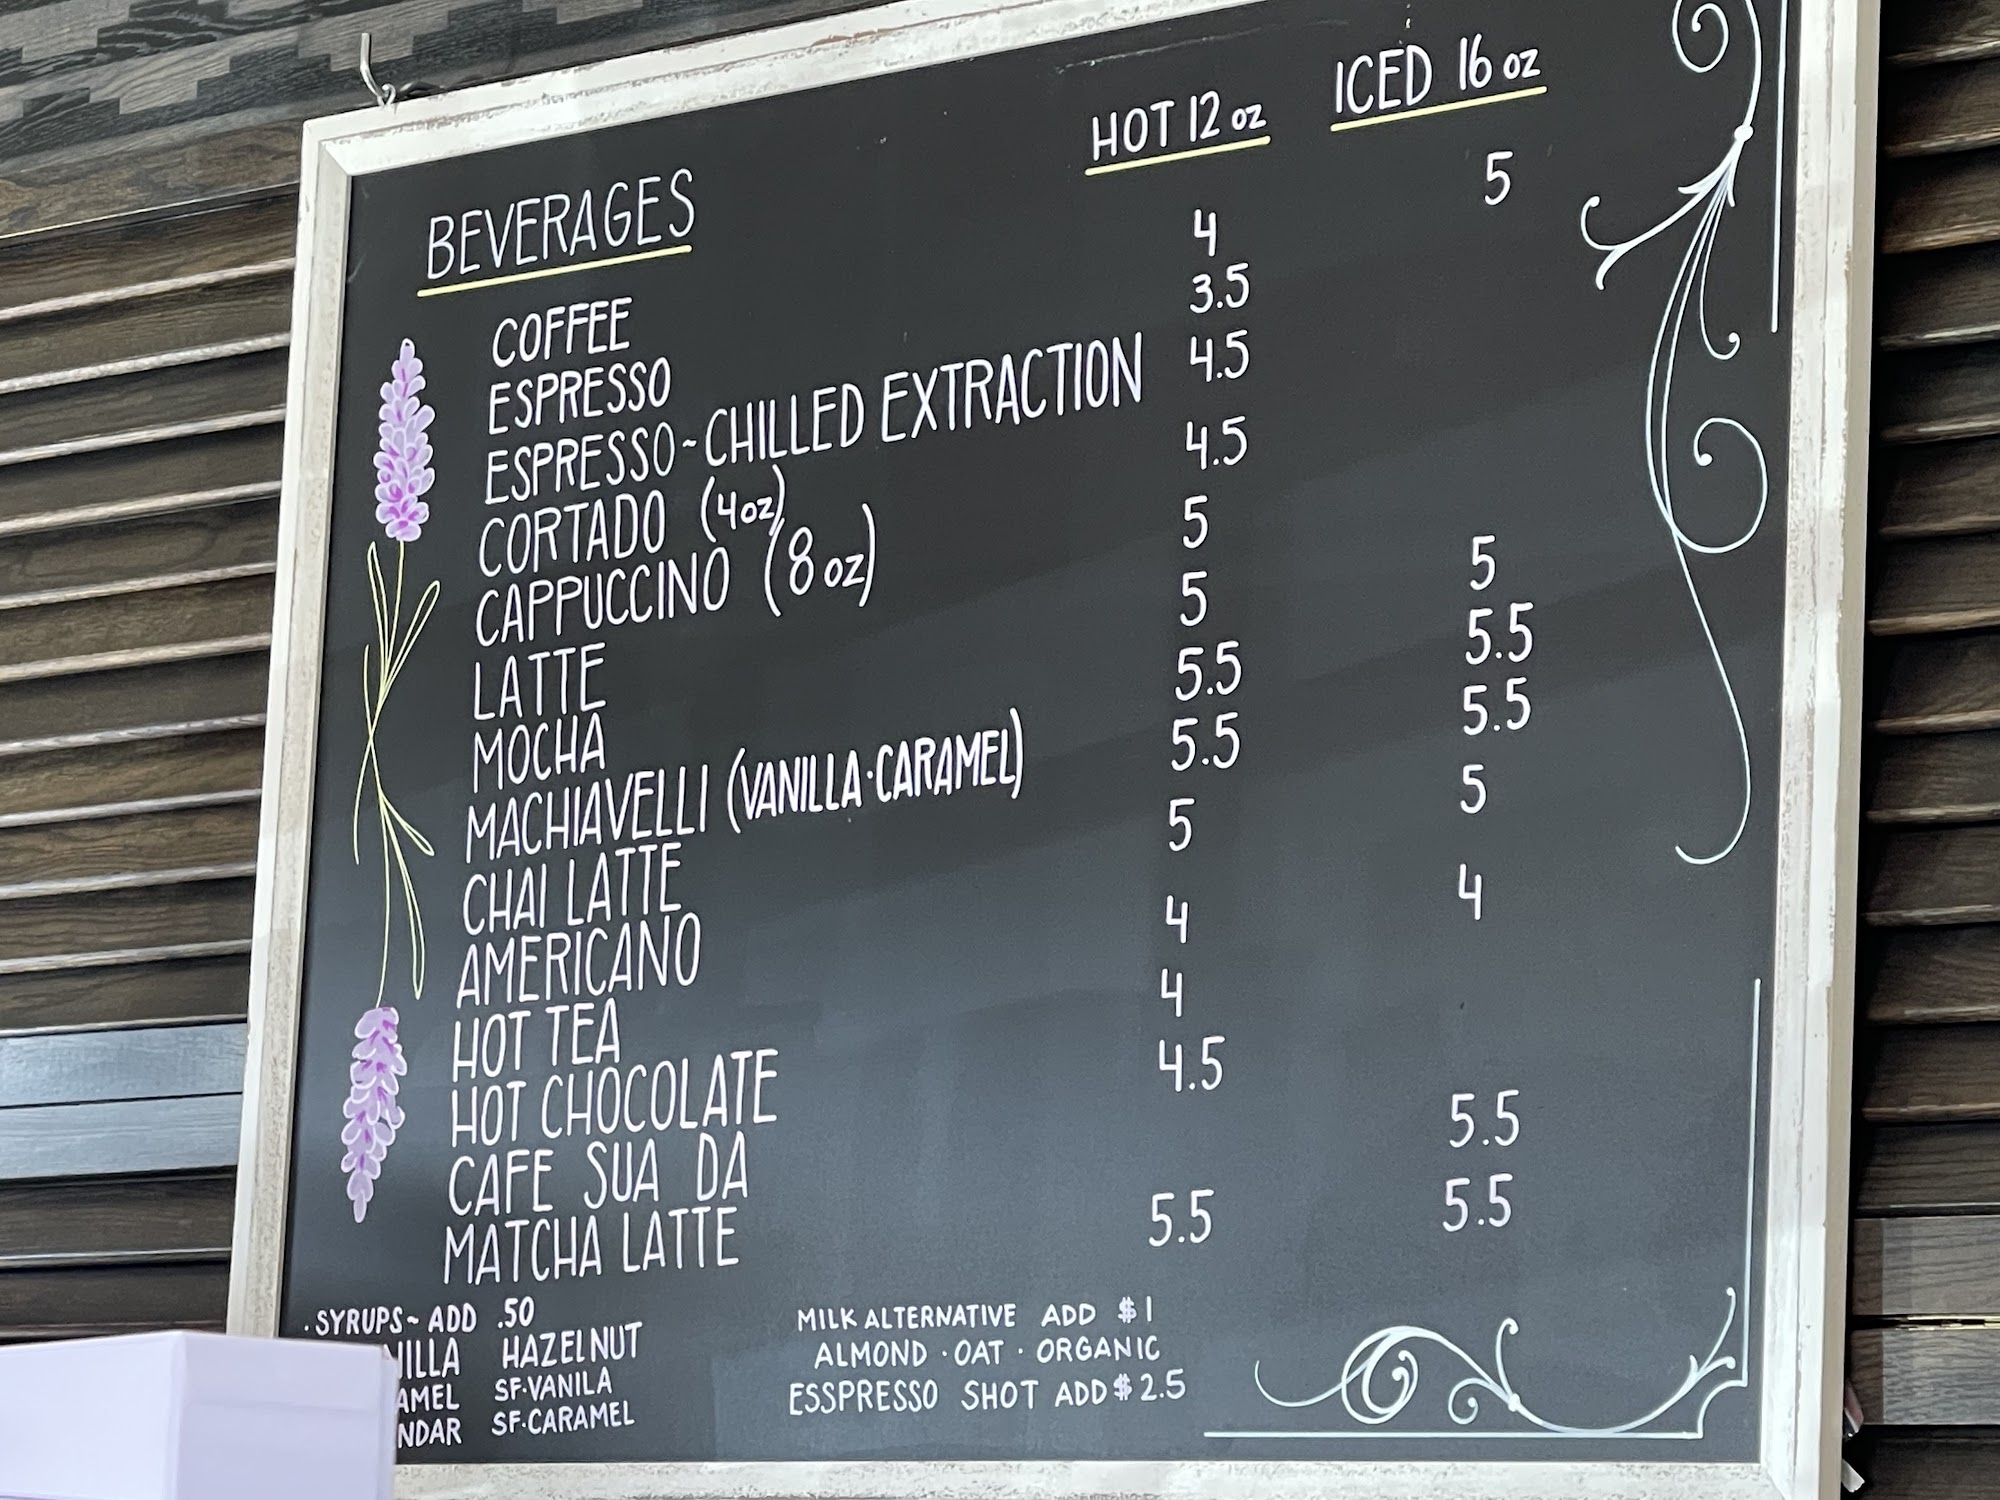 BEVERAGES HOT 12 oz ICED 16 oz
COFFEE 4 5
ESPRESSO 3.5
ESPRESSO~CHILLED EXTRACTION 4.5
CORTADO (4oz) 4.5
CAPPUCCINO (8 oz) 5
LATTE 5 5
MOCHA 5.5 5.5
MACHIAVELLI (VANILLA·CARAMEL) 5.5 5.5
CHAI LATTE 5 5
AMERICANO 4 4
HOT TEA 4
HOT CHOCOLATE 4.5
CAFE SUA DA 5.5
MATCHA LATTE 5.5 5.5
· SYRUPS~ ADD .50
NILLA HAZELNUT
AMEL SF·VANILA
NDAR SF·CARAMEL
MILK ALTERNATIVE ADD $1
ALMOND · OAT · ORGANIC
ESSPRESSO SHOT ADD $2.5